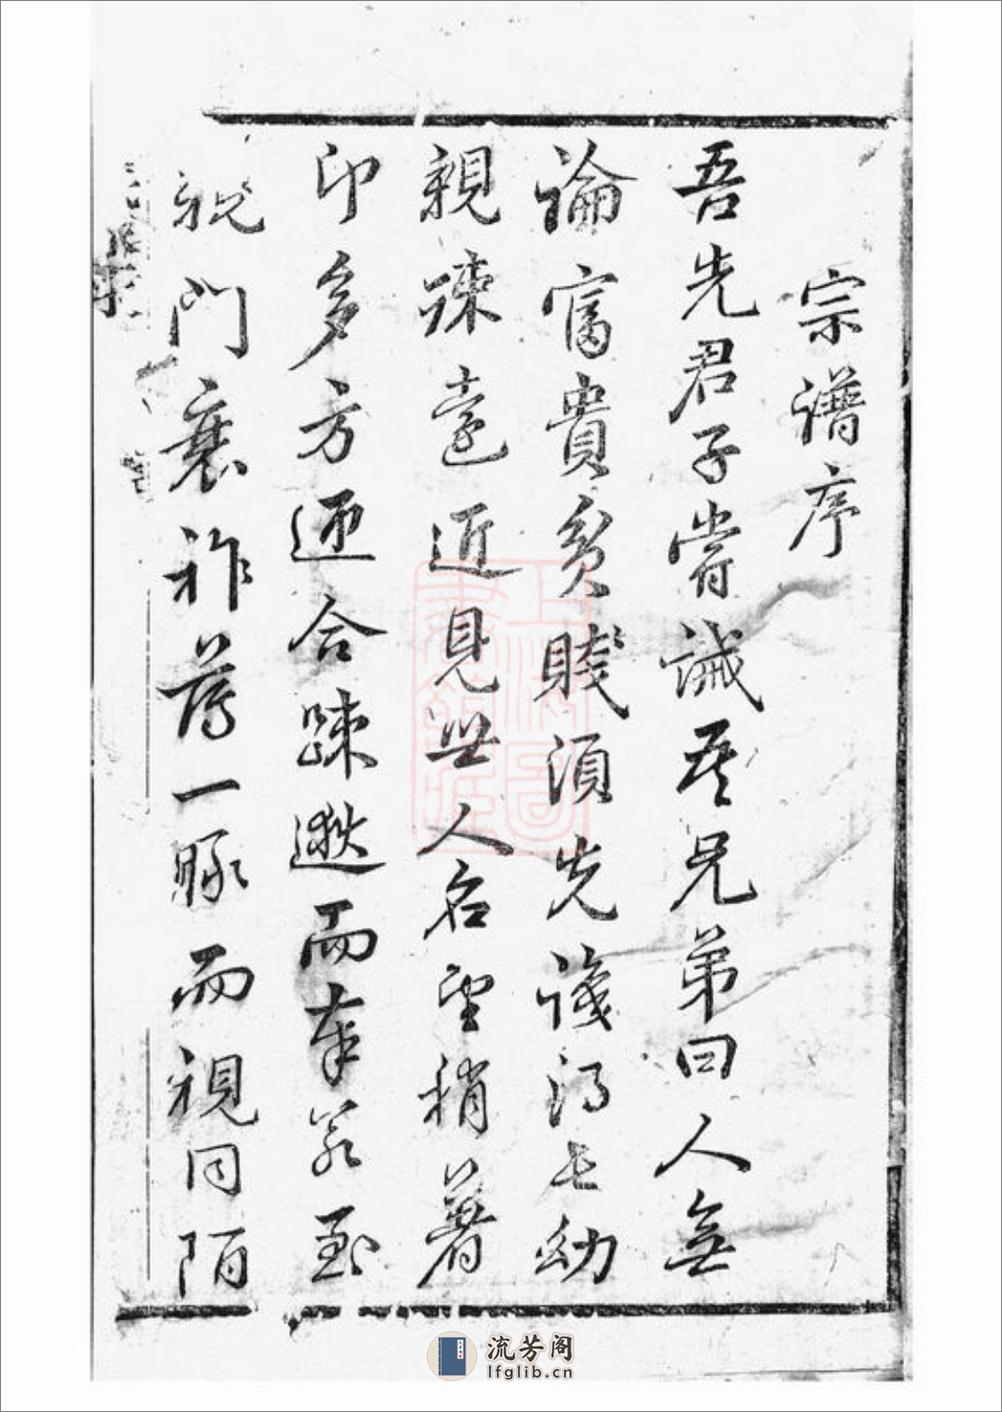 宗譜序
吾先君子嘗誡吾兄弟曰人無
論富貴貧賤須先識得長幼
親踈遠近見世人名望稍著
即多方迎合踈逖而奉若至
親門衰祚薄一脉而視同陌
上海圖
書館藏
流芳阁
lfglib.cn